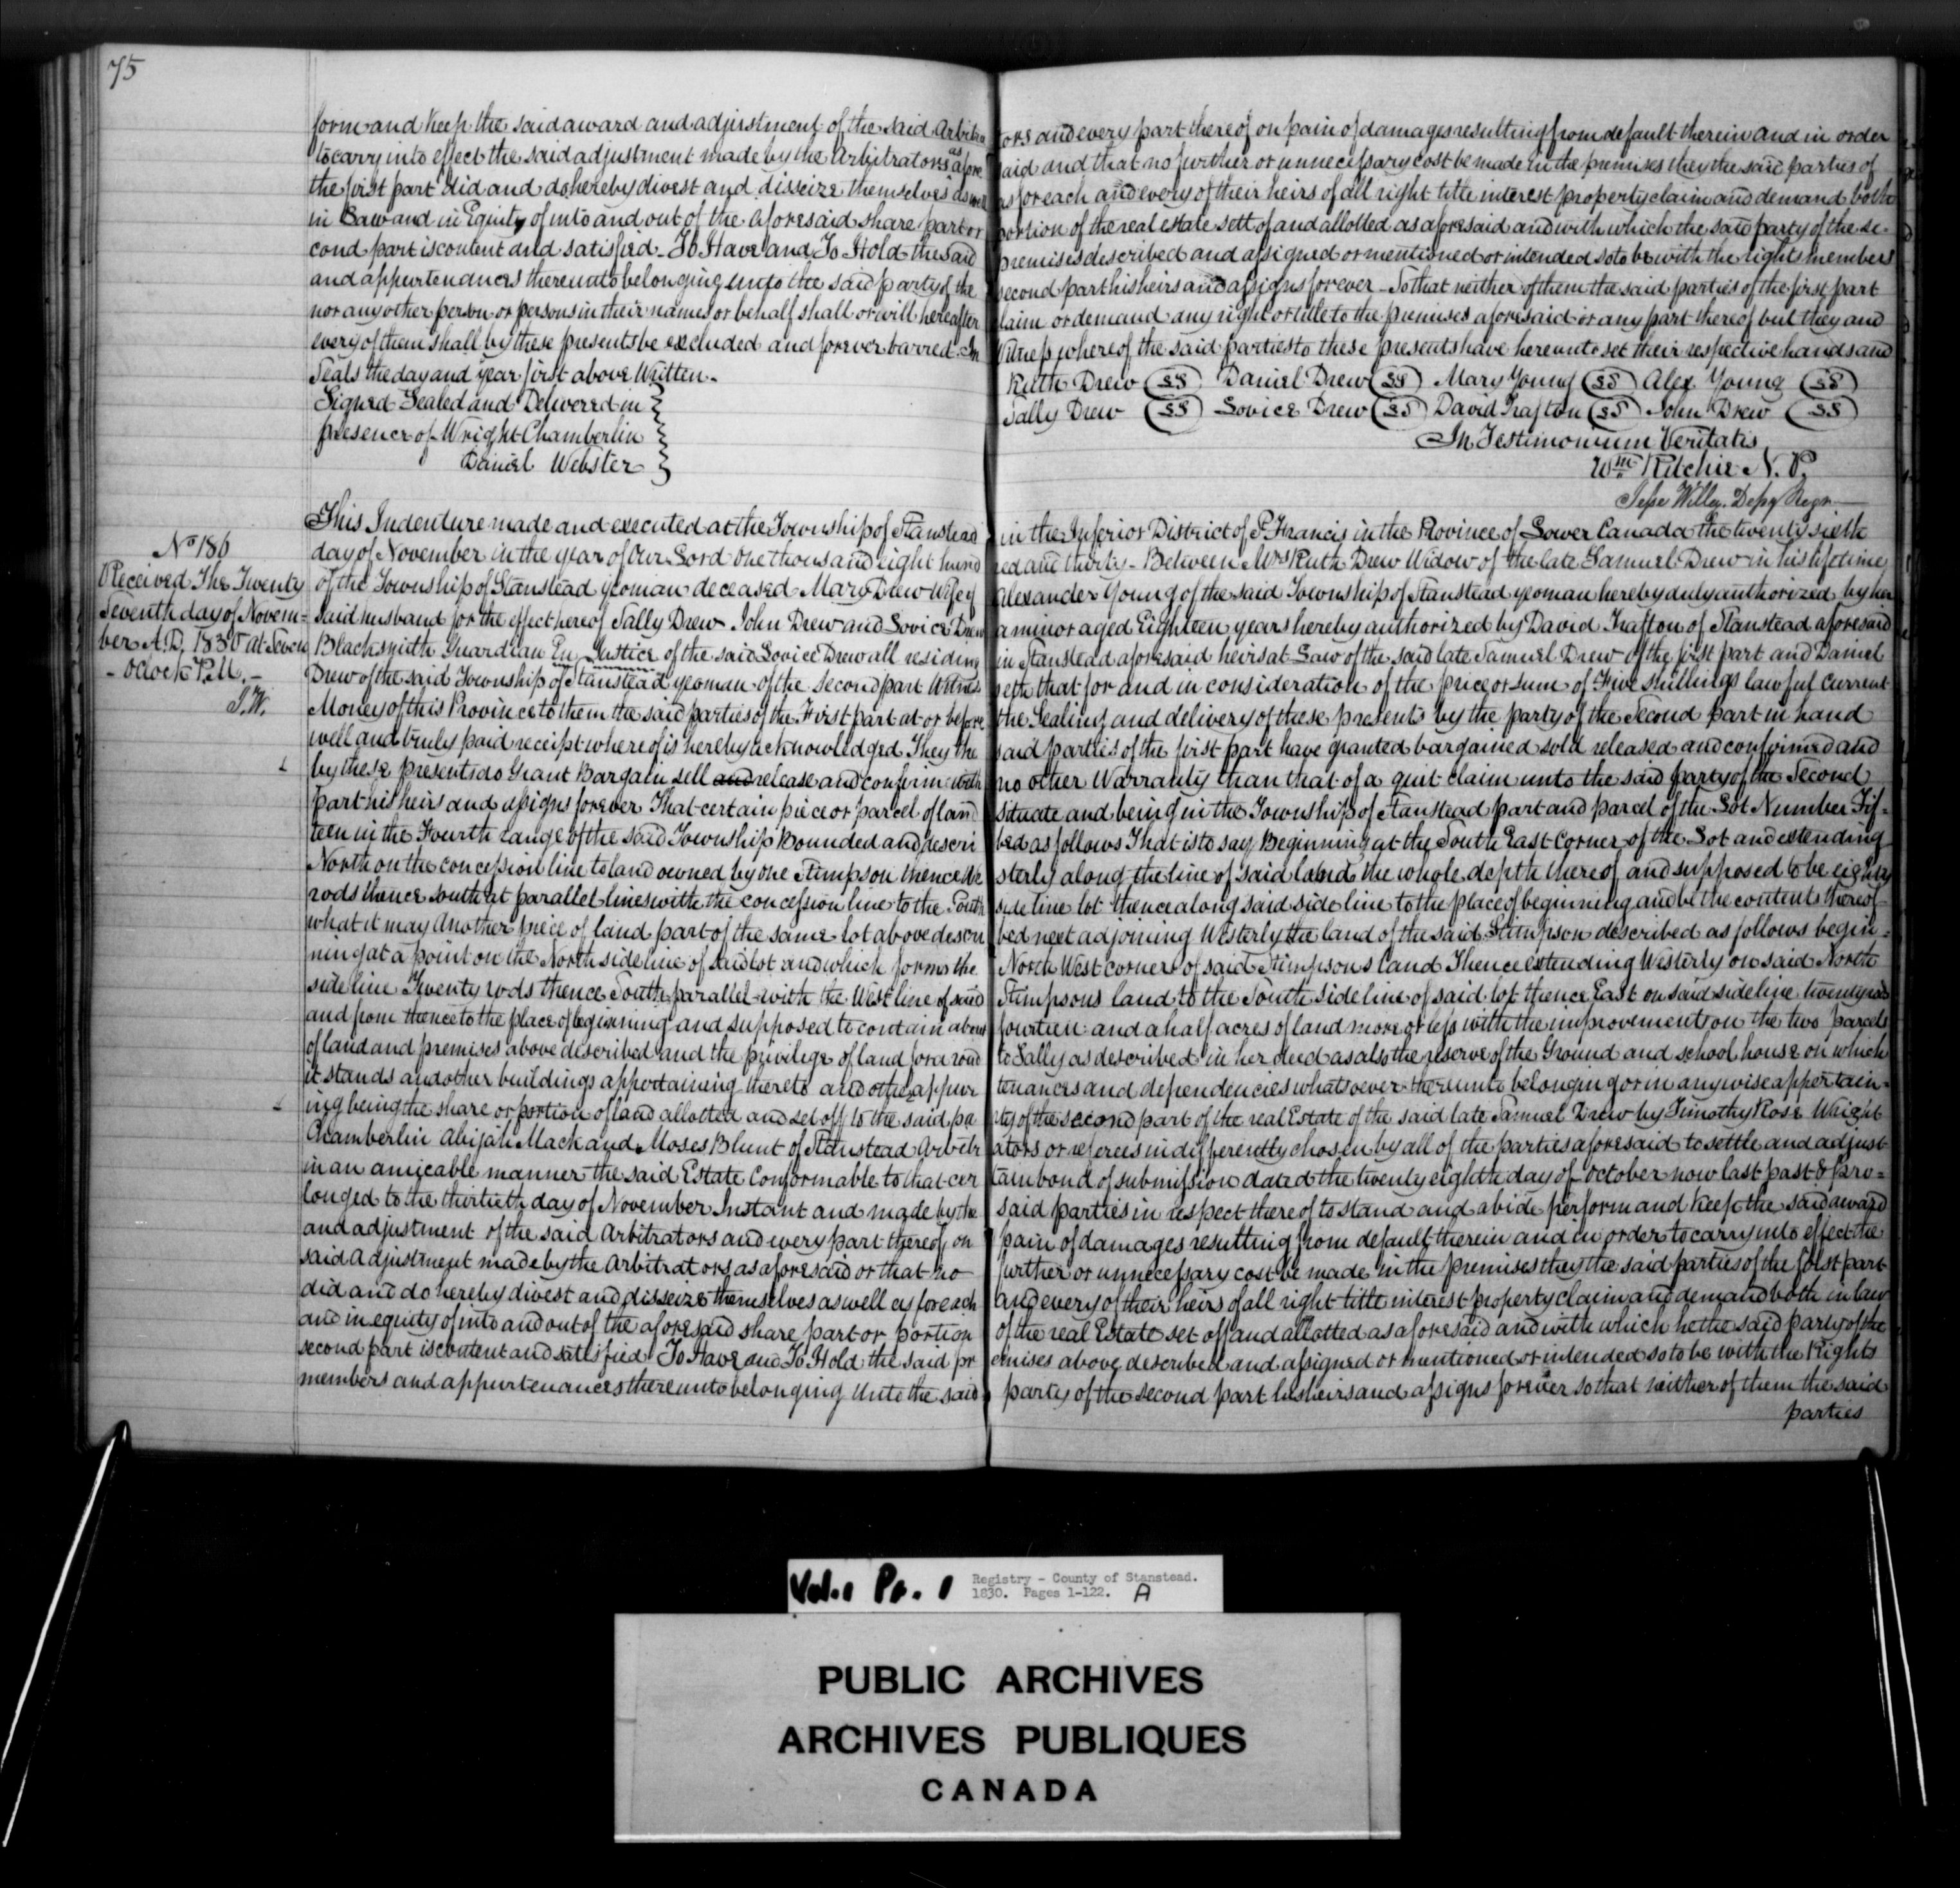 75
form and keep the said award and adjustment of the said Arbitra tors and every part thereof on pain of damages resulting from default therein and in order
to carry into effect the said adjustment made by the Arbitrators as afore said and that no further or unnecessary cost be made in the premises they the said parties of
the first part did and do hereby divest and disseize themselves as well as for each and every of their heirs of all right title interest property claim and demand both
in Law and in Equity of into and out of the aforesaid share part or portion of the real estate sett of and allotted as aforesaid and with which the said party of the se-
cond part is content and satisfied. To Have and To Hold the said premises described and assigned or mentioned or intended so to be with the rights members
and appurtenances thereunto belonging unto the said party of the second part his heirs and assigns forever – So that neither of them the said parties of the first part
nor any other person or persons in their names or behalf shall or will hereafter claim or demand any right or title to the premises aforesaid or any part thereof but they and
every of them shall by these presents be excluded and forever barred. In Witness whereof the said parties to these presents have hereunto set their respective hands and
Seals the day and year first above Written.
Ruth Drew (SS) Daniel Drew (SS) Mary Young (SS) Alex Young (SS)
Signed Sealed and Delivered in
Sally Drew (SS) Lovice Drew (SS) David Trafton (SS) John Drew (SS)
presence of Wright Chamberlin
In Testimonium Veritatis
Daniel Webster
Wm Ritchie N. P.
Jesse Willey Depy Regr
This Indenture made and executed at the Township of Stanstead in the Inferior District of St Francis in the Province of Lower Canada the twenty sixth
No 186
day of November in the year of Our Lord One thousand eight hund red and thirty – Between Mrs Ruth Drew Widow of the late Samuel Drew in his lifetime
Received The Twenty
of the Township of Stanstead yeoman deceased Mary Drew Wife of Alexander Young of the said Township of Stanstead yeoman hereby duly authorized by her
Seventh day of Novem-
said husband for the effect hereof Sally Drew John Drew and Lovice Drew a minor aged Eighteen years hereby authorized by David Trafton of Stanstead aforesaid
ber A.D. 1830 At Seven
Blacksmith Guardian En Justice of the said Lovice Drew all residing in Stanstead aforesaid heirs at Law of the said late Samuel Drew of the first part and Daniel
- oclock P.M. -
Drew of the said Township of Stanstead yeoman of the Second part Witnes seth that for and in consideration of the price or sum of Five shillings lawful current
J.W.
Money of this Province to them the said parties of the First part at or before the Sealing and delivery of these presents by the party of the Second part in hand
well and truly paid receipt whereof is hereby acknowledged They the said parties of the first part have granted bargained sold released and confirmed and
by these presents do Grant Bargain sell and release and confirm with no other Warranty than that of a quit claim unto the said party of the Second
part his heirs and assigns forever That certain piece or parcel of land situate and being in the Township of Stanstead part and parcel of the Lot Number Fif-
teen in the Fourth range of the said Township Bounded and descri bed as follows That is to say Beginning at the South East Corner of the Lot and extending
North on the concession line to land owned by one Stimpson thence We sterly along the line of said land the whole depth thereof and supposed to be eighty
rods thence south at parallel lines with the concession line to the South side line lot thence along said side line to the place of beginning and be the contents thereof
what it may Another piece of land part of the same lot above descri bed next adjoining Westerly the land of the said Stimpson described as follows begin-
ning at a point on the North side line of said lot and which forms the North West corner of said Stimpsons land Thence extending Westerly on said North
side line Twenty rods thence South parallel with the West line of said Stimpsons land to the South side line of said lot thence East on said side line twenty rods
and from thence to the place of beginning and supposed to contain about fourteen and a half acres of land more or less with the improvements on the two parcels
of land and premises above described and the privilege of land for a road to Sally as described in her deed as also the reserve of the Ground and school house on which
it stands and other buildings appertaining thereto and other appur tenances and dependencies whatsoever thereunto belonging or in anywise appertain-
ing being the share or portion of land allotted and set off to the said par ty of the second part of the real Estate of the said late Samuel Drew by Timothy Rose Wright
Chamberlin Abijah Mack and Moses Blunt of Stanstead Arbitr ators or referees indifferently chosen by all of the parties aforesaid to settle and adjust
in an amicable manner the said Estate Conformable to that cer tain bond of submission dated the twenty eighth day of October now last past & pro-
longed to the thirtieth day of November Instant and made by the said parties in respect thereof to stand and abide perform and keep the said award
and adjustment of the said Arbitrators and every part thereof on pain of damages resulting from default therein and in order to carry into effect the
said Adjustment made by the Arbitrators as aforesaid or that no further or unnecessary cost be made in the premises they the said parties of the first part
did and do hereby divest and disseize themselves as well as for each and every of their heirs of all right title interest property claim and demand both in law
and in equity of into and out of the aforesaid share part or portion of the real Estate set off and allotted as aforesaid and with which he the said party of the
second part is content and satisfied To Have and To Hold the said pr emises above described and assigned or mentioned or intended so to be with the Rights
members and appurtenances thereunto belonging Unto the said party of the second part his heirs and assigns forever so that neither of them the said
parties
Vol. 1 Pr. 1 Registry - County of Stanstead.
1830. Pages 1-122. A
PUBLIC ARCHIVES
ARCHIVES PUBLIQUES
CANADA